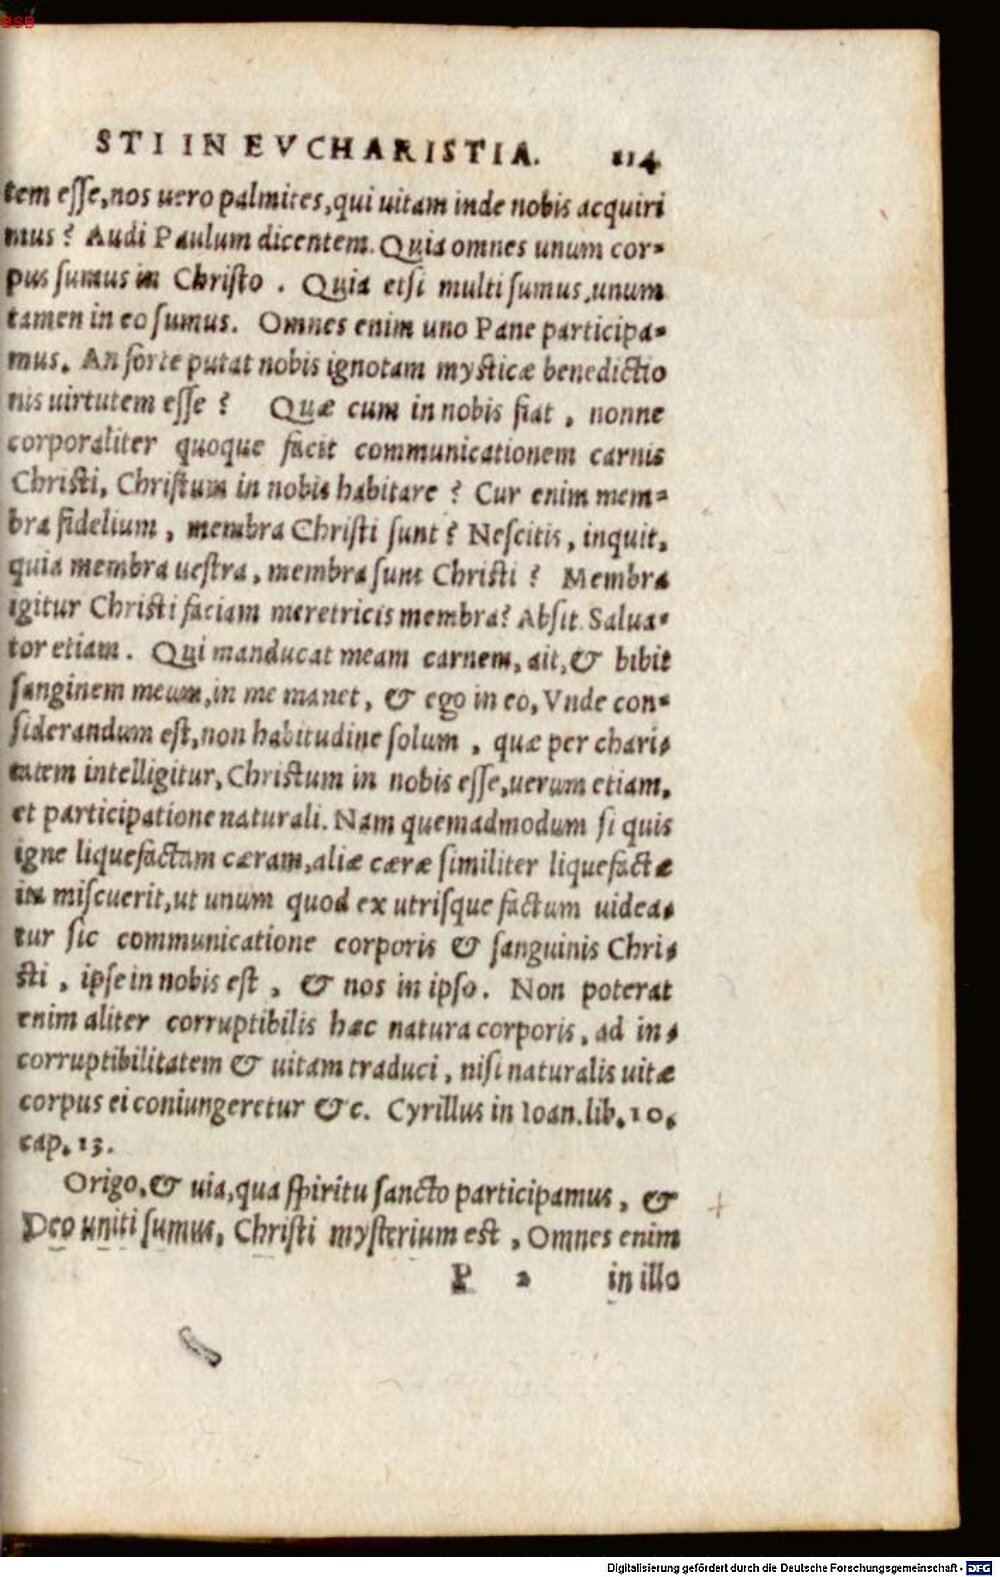 BSB
STI IN EVCHARISTIA. 114
tem esse, nos uero palmites, qui uitam inde nobis acquiri
mus? Audi Paulum dicentem. Quia omnes unum cor=
pus sumus in Christo. Quia etsi multi sumus, unum
tamen in eo sumus. Omnes enim uno Pane participa=
mus. An forte putat nobis ignotam mysticæ benedictio
nis uirtutem esse? Quæ cum in nobis fiat, nonne
corporaliter quoque facit communicationem carnis
Christi, Christum in nobis habitare? Cur enim mem=
bra fidelium, membra Christi sunt? Nescitis, inquit,
quia membra uestra, membra sunt Christi? Membra
igitur Christi faciam meretricis membra? Absit. Salua=
tor etiam. Qui manducat meam carnem, ait, & bibit
sanginem meum, in me manet, & ego in eo, Vnde con=
siderandum est, non habitudine solum, quæ per chari=
tatem intelligitur, Christum in nobis esse, uerum etiam,
et participatione naturali. Nam quemadmodum si quis
igne liquefactam cæram, aliæ cæræ similiter liquefactæ
im miscuerit, ut unum quod ex utrisque factum uidea=
tur sic communicatione corporis & sanguinis Chri=
sti, ipse in nobis est, & nos in ipso. Non poterat
enim aliter corruptibilis hæc natura corporis, ad in=
corruptibilitatem & uitam traduci, nisi naturalis uitæ
corpus ei coniungeretur &c. Cyrillus in Ioan. lib. 10.
cap. 13.
Origo, & uia, qua spiritu sancto participamus, &
Deo uniti sumus, Christi mysterium est, Omnes enim
P 2 in illo
Digitalisierung gefördert durch die Deutsche Forschungsgemeinschaft - DFG